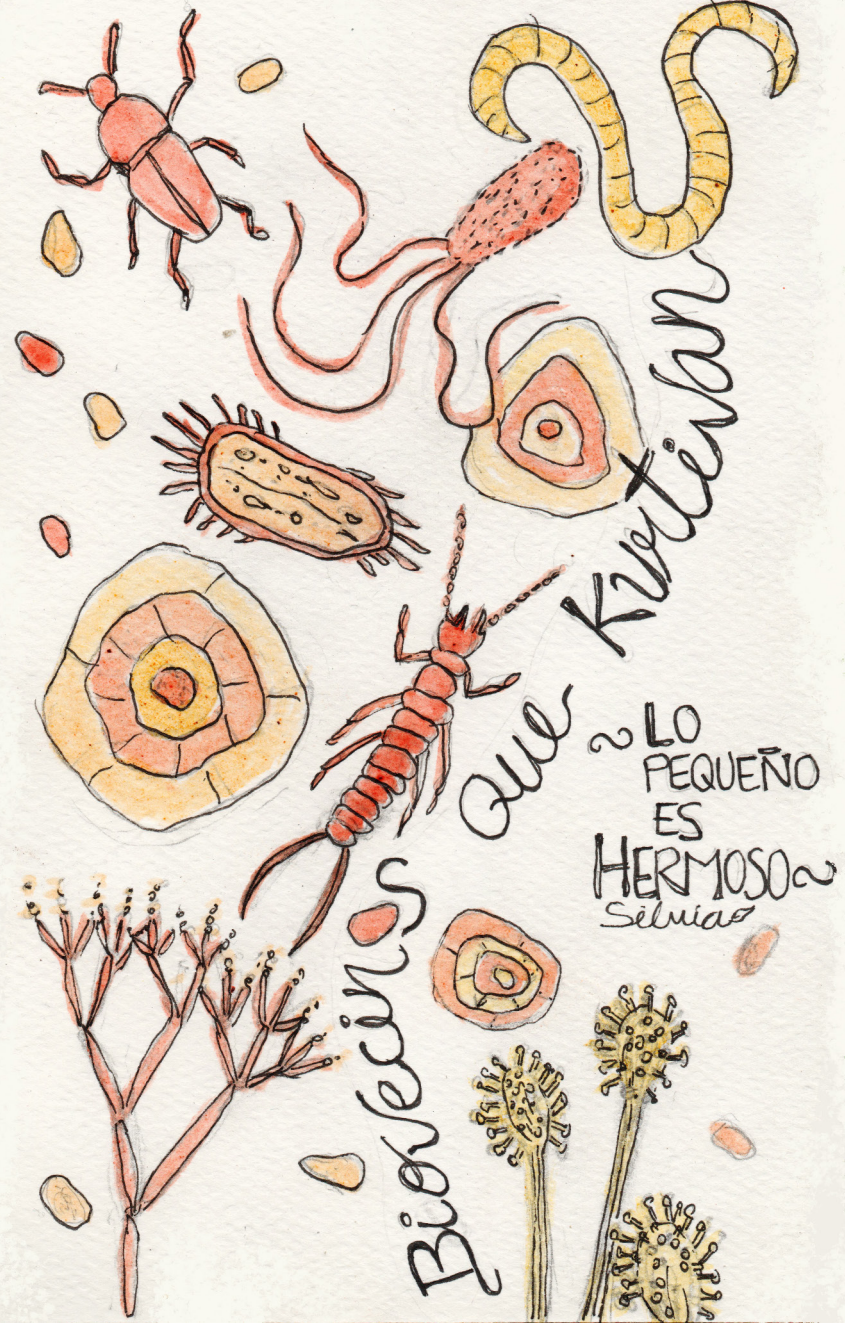 Biovecinos que Kurtivan
~ LO
PEQUEÑO
ES
HERMOSO ~
Silvia